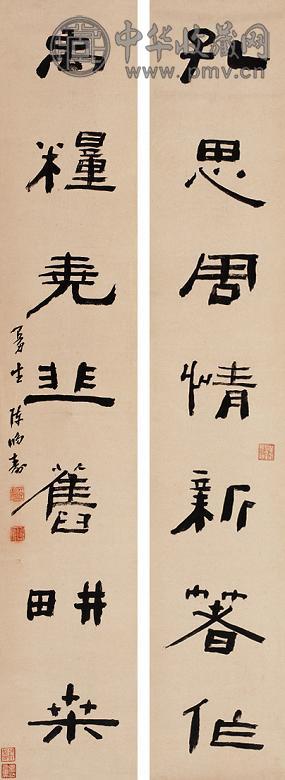 中华收藏网
www.pmv.cn
孔思周情新著作
禹糧堯韭舊畊桒
曼生陳鴻壽